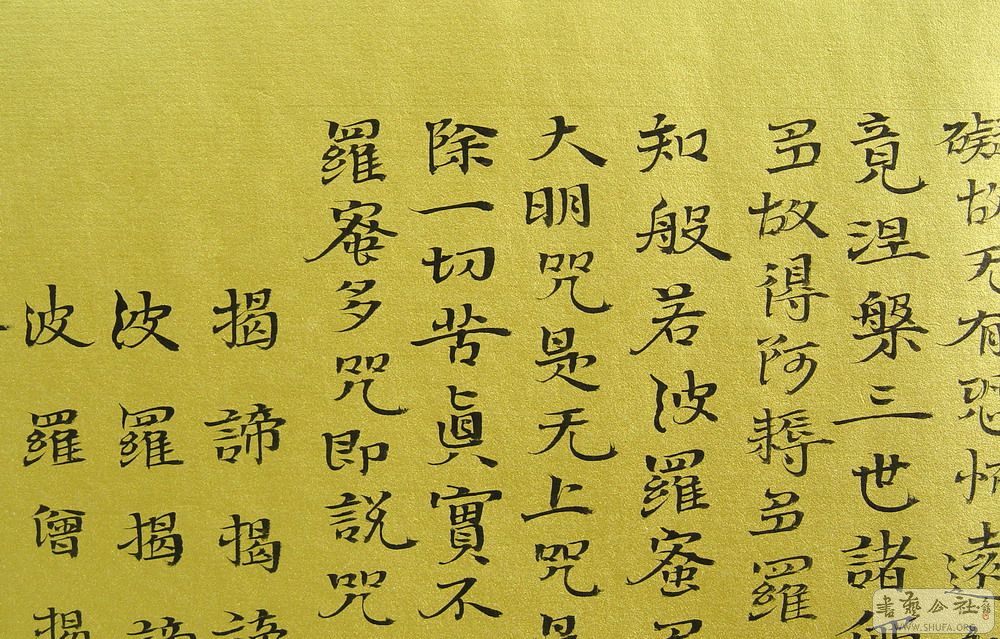 礙故无有恐怖遠
竟涅槃三世諸
多故得阿耨多羅
知般若波羅蜜多
大明咒是无上咒是
除一切苦真實不
羅蜜多咒即說咒
揭諦揭諦
波羅揭諦
波羅僧揭
書藝公社
WWW.SHUFA.ORG